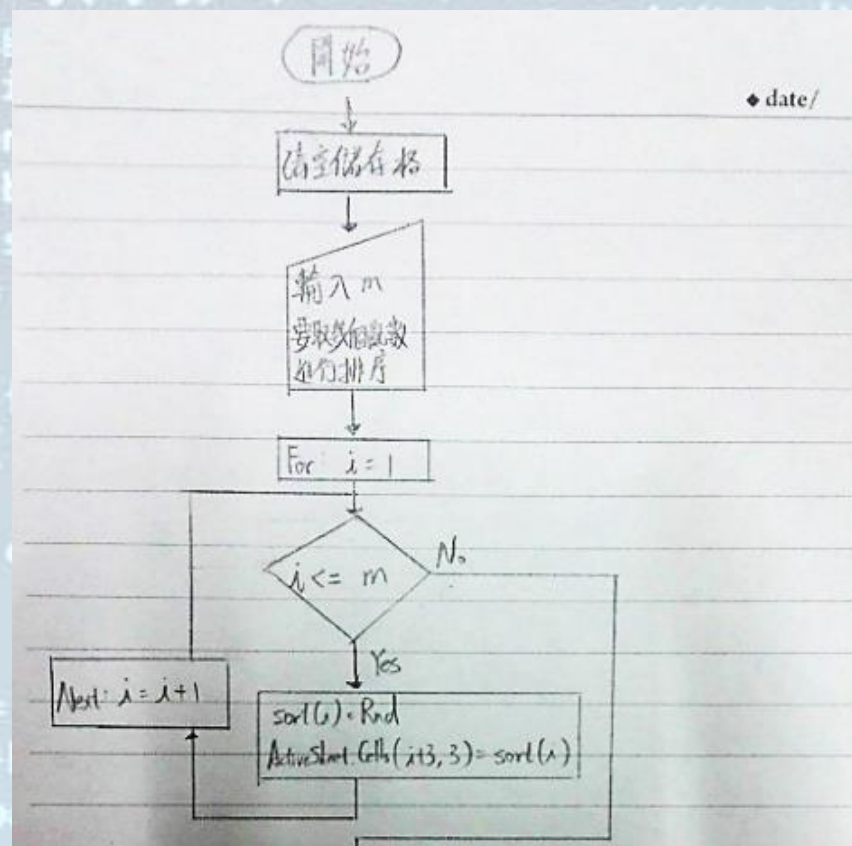 開始
◆ date/
清空儲存格
輸入 m
要取幾個亂數
進行排序
For: i = 1
i <= m
No
Yes
Next: i = i+1
sort(i) = Rnd
ActiveSheet.Cells(i+3, 3) = sort(i)